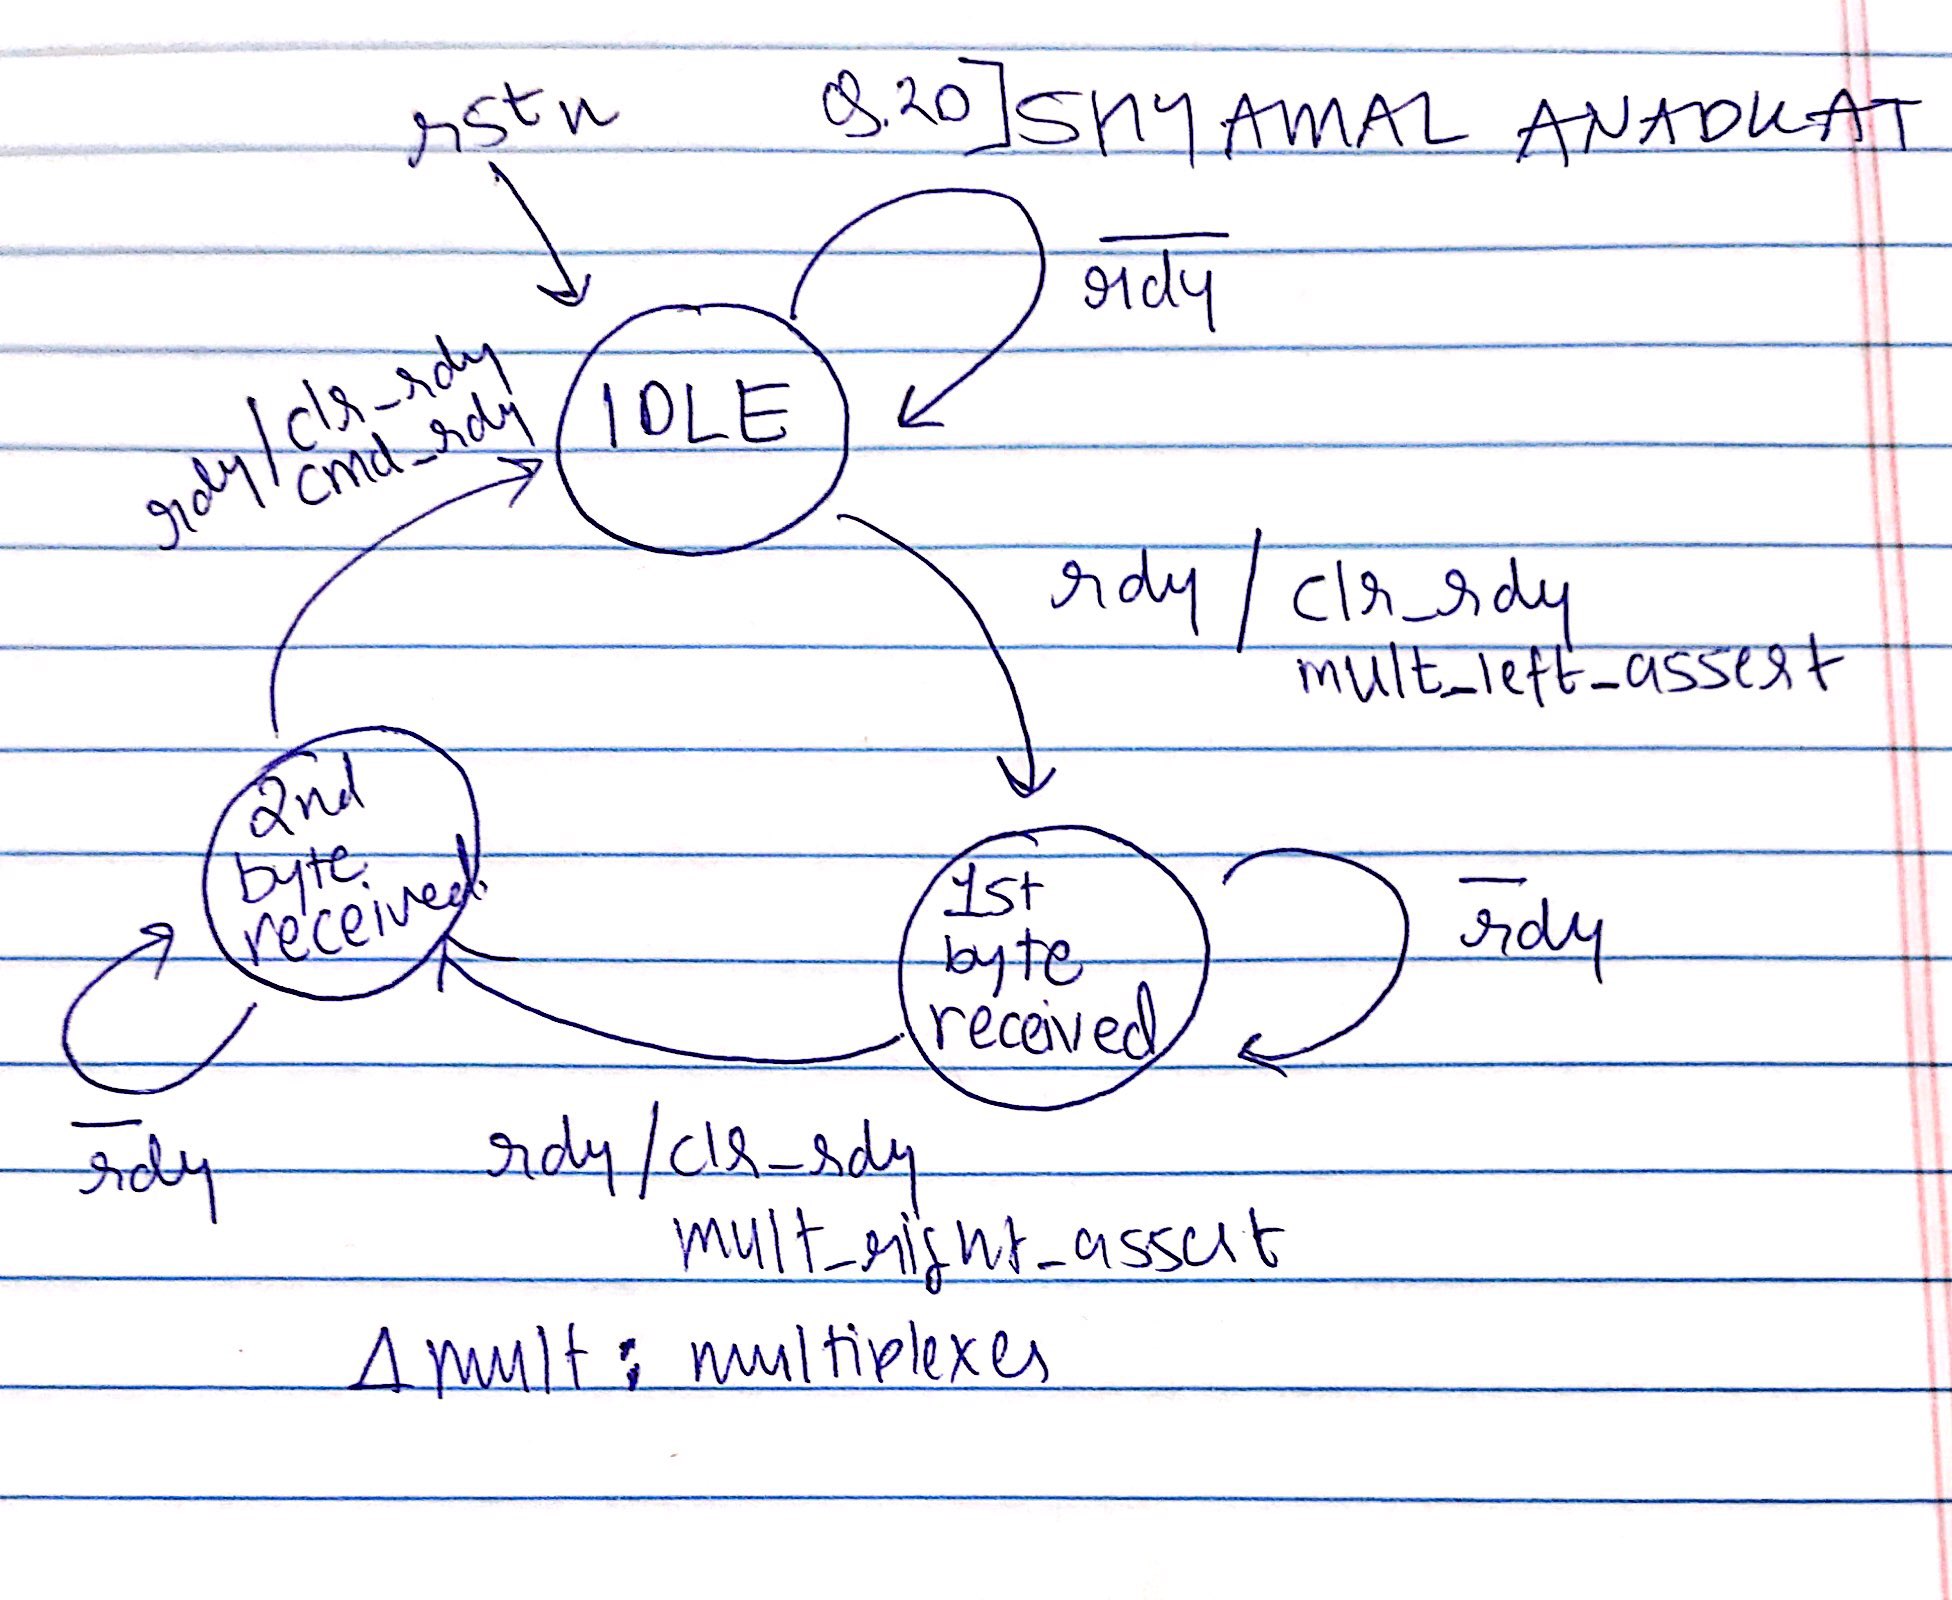 rstn
Q.20] SHYAMAL ANADKAT
rdy
IDLE
rdy / clr_rdy
cmd_rdy
rdy / clr_rdy
mult_left_assert
2nd
byte
received
1st
byte
received
rdy
rdy
rdy / clr_rdy
mult_right_assert
Δ mult : multiplexes